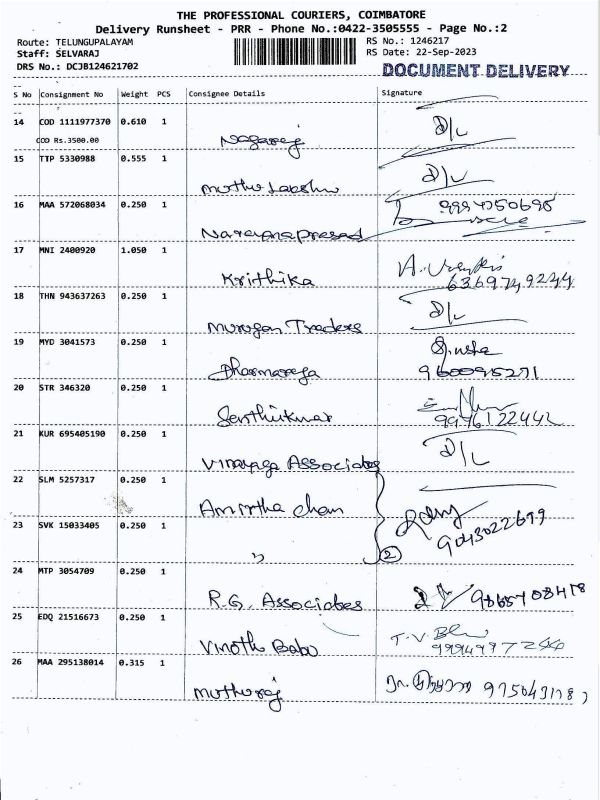 THE PROFESSIONAL COURIERS, COIMBATORE
Delivery Runsheet - PRR - Phone No.:0422-3505555 - Page No.:2
Route: TELUNGUPALAYAM RS No.: 1246217
Staff: SELVARAJ RS Date: 22-Sep-2023
DRS No.: DCJB124621702 DOCUMENT DELIVERY
S No Consignment No Weight PCS Consignee Details Signature
14 COD 1111977370 0.610 1 D/L
COD Rs.3500.00 Nagaraj
15 TTP 5330988 0.555 1 D/L
Muthu Lakshmi
16 MAA 572068034 0.250 1
Narayanaprasad
17 MNI 2400920 1.050 1
Krithika 6369749244
18 THN 943637263 0.250 1 D/L
Murugan Traders
19 MYD 3041573 0.250 1
Dharmaraja 9600915271
20 STR 346320 0.250 1
Senthilkumar 9976122442
21 KUR 695405190 0.250 1 D/L
Vinayaga Associates
22 SLM 5257317 0.250 1
Amirtha Chan
23 SVK 15033405 0.250 1 9043022699
" 2
24 MTP 3054709 0.250 1
R.G. Associates 9865708478
25 EDQ 21516673 0.250 1 T.V.
Vinoth Babu 9994997244
26 MAA 295138014 0.315 1
Muthuraj